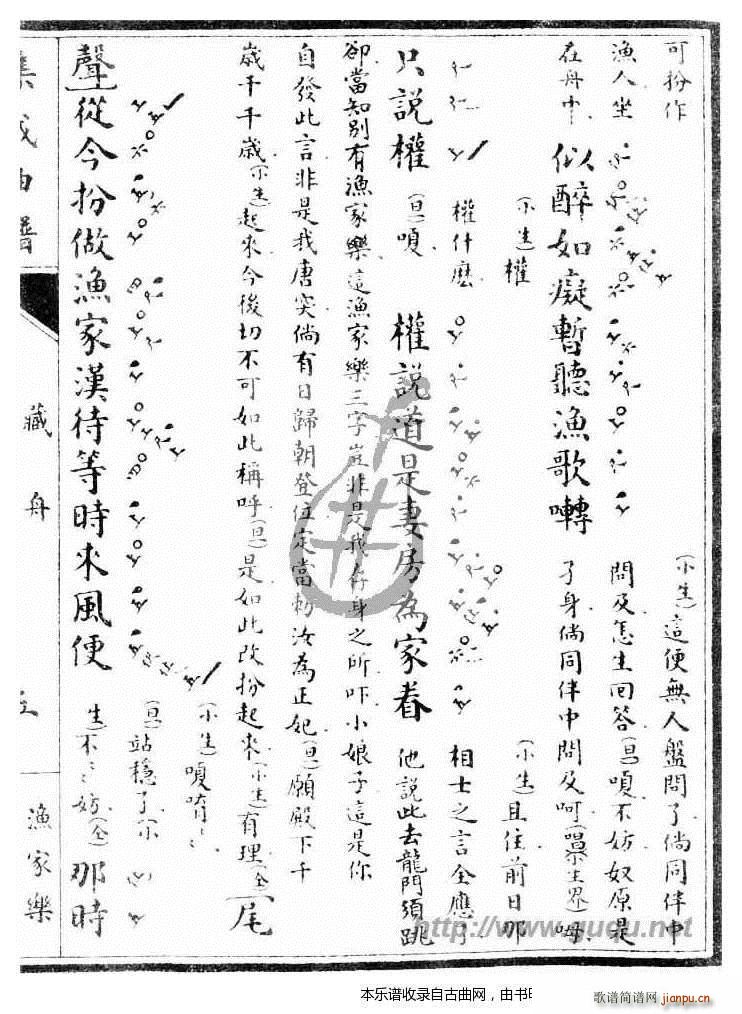 可扮作
漁人坐
在舟中
似醉如癡暫聽漁歌囀
(小生)這便無人盤問了倘同伴中
問及怎生回答(旦)嗄不妨奴原是
孑身倘同伴中問及呵
(小生)權
權什麼
(小生)且住前日那
相士之言全應了
只說權
(旦)嗄
權說道是妻房為家眷
他說此去龍門須跳
卻當知別有漁家樂這漁家樂三字豈非是我存身之所吓小娘子這是你
自發此言非是我唐突倘有日歸朝登位定當勑汝為正妃(旦)願殿下千
歲千千歲(小生)起來今後切不可如此稱呼(旦)是如此改扮起來(小生)有理(全)
尾
聲
從今扮做漁家漢待等時來風便
(小生)嗄唷〻
(旦)站穩了(小
生)不〻妨(全)
那時
集成曲譜
藏舟
漁家樂
http://www.guqu.net
本乐谱收录自古曲网，由书
歌谱简谱网
jianpu.cn